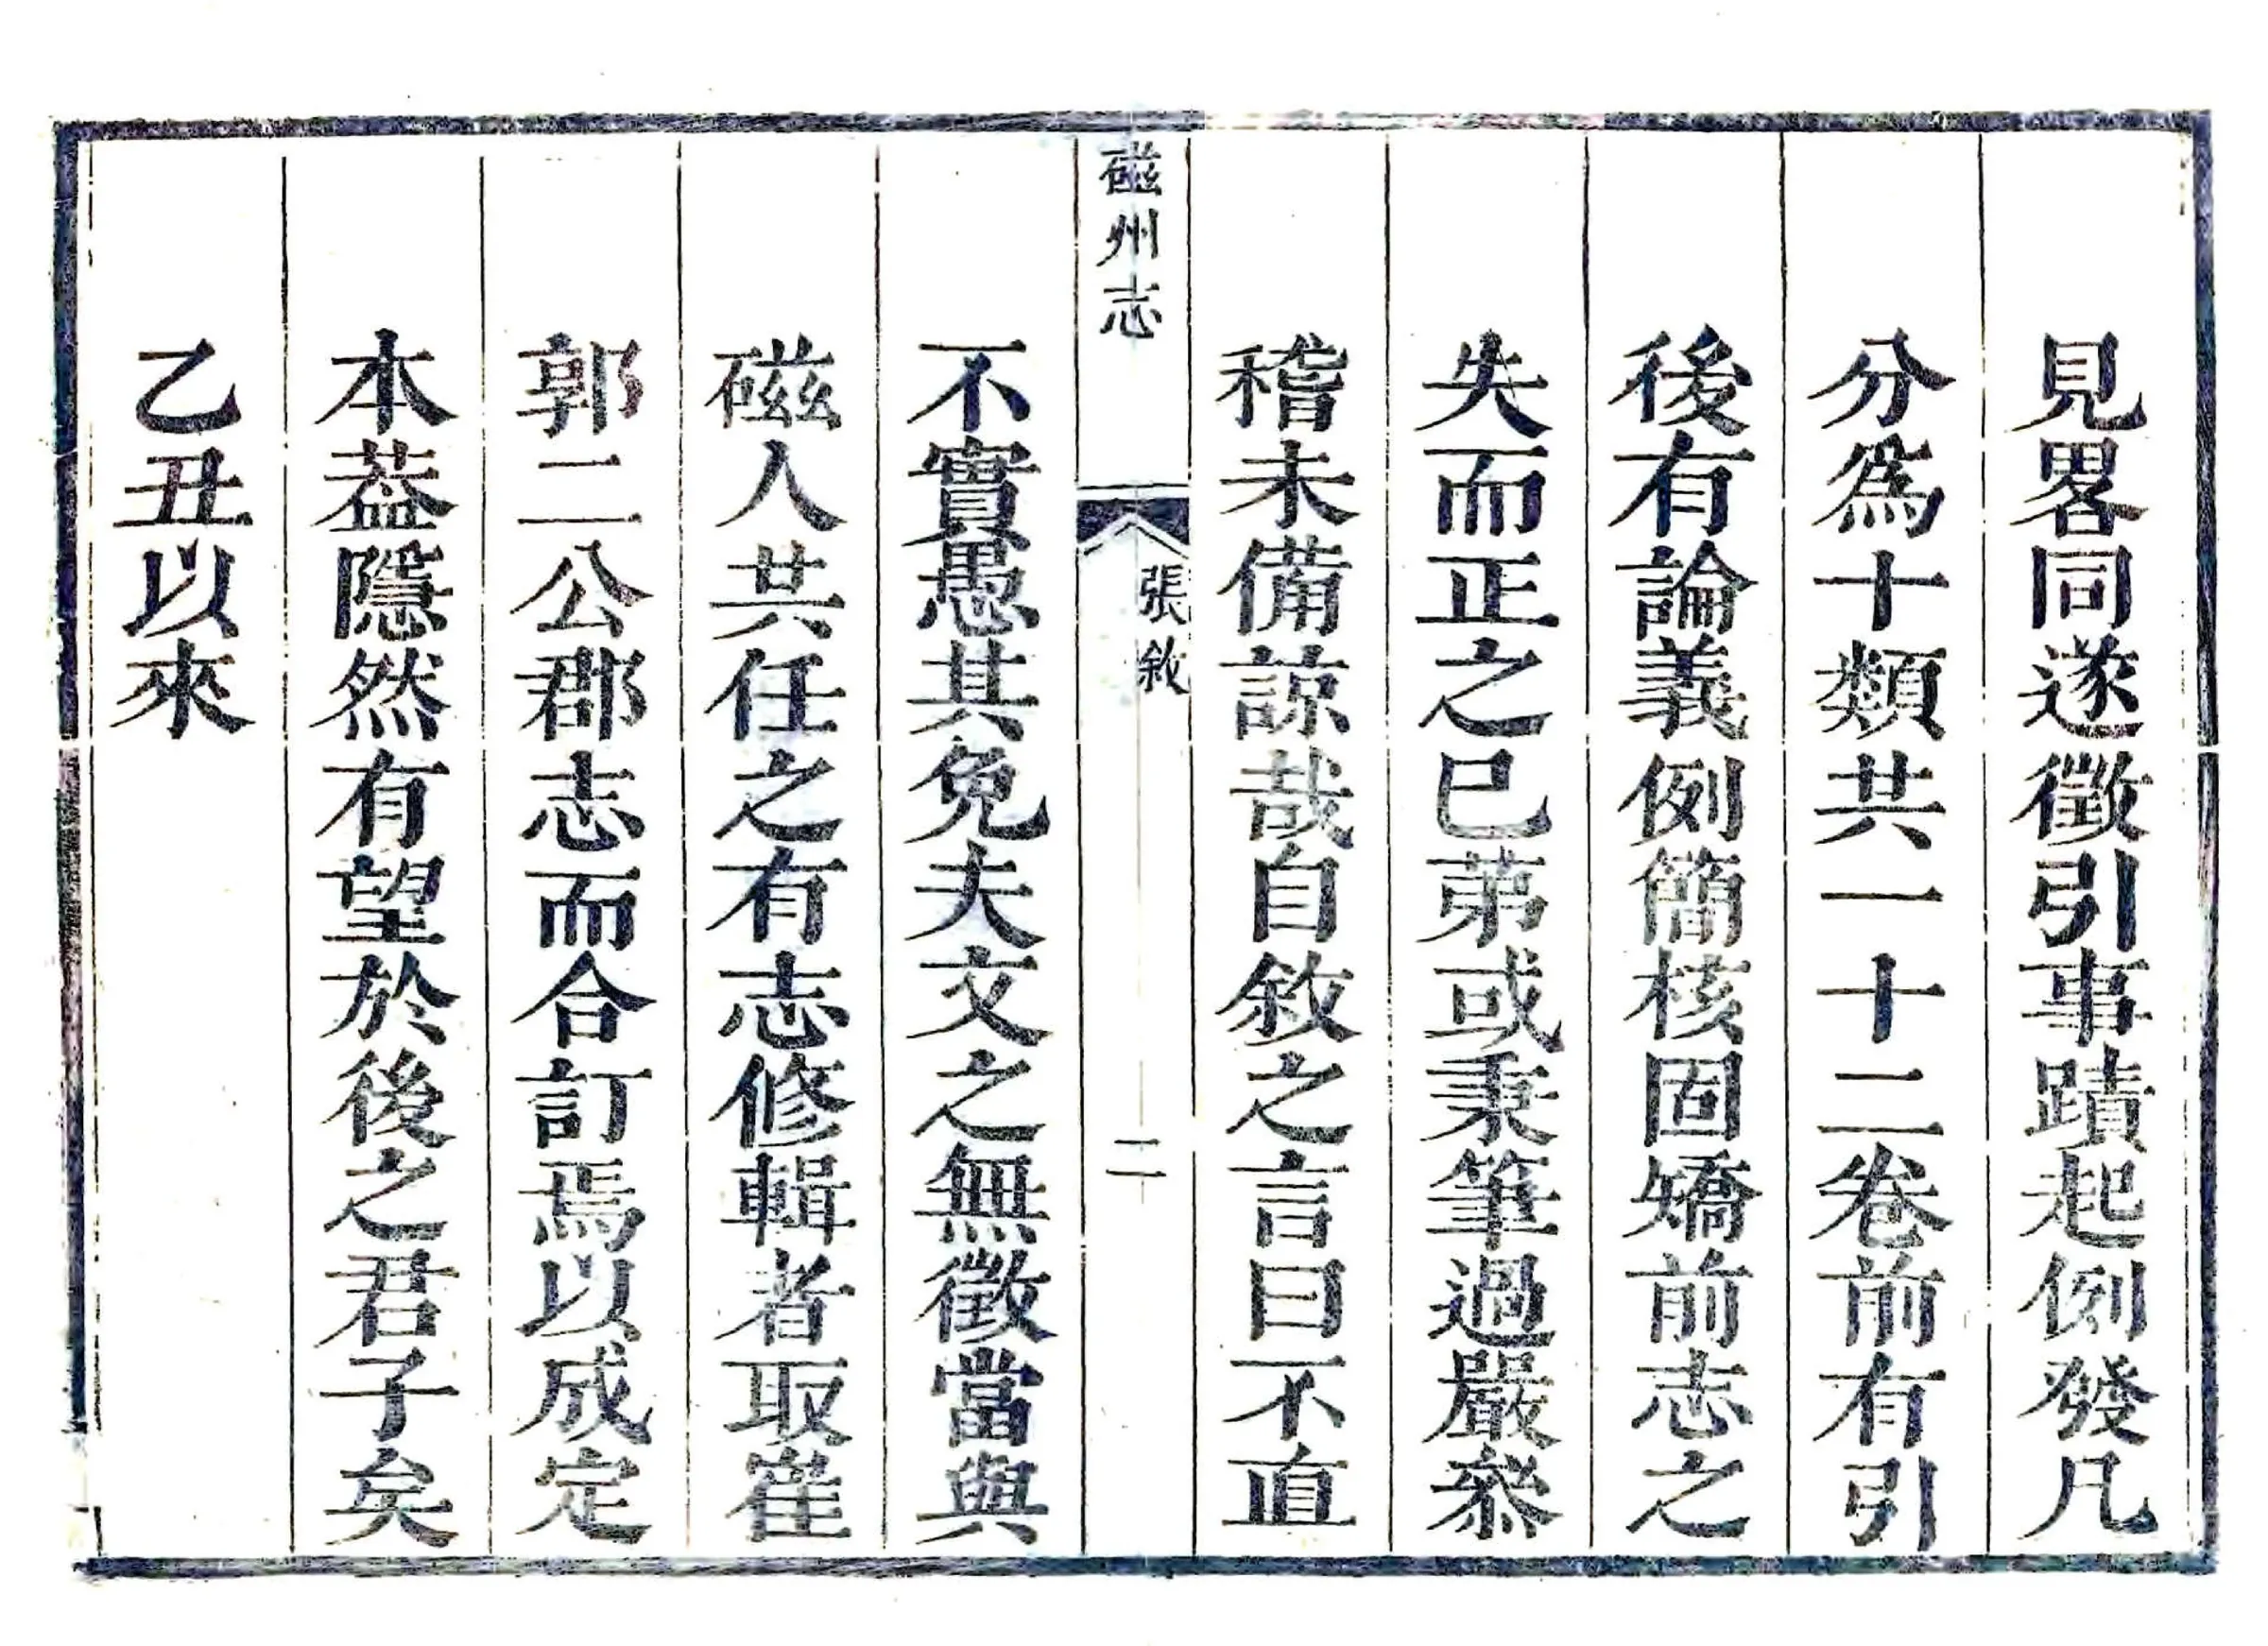 見畧同遂徵引事蹟起例發凡
分爲十類共一十二卷前有引
後有論義例簡核固矯前志之
失而正之已苐或秉筆過嚴叅
稽未備諒哉自敘之言曰不直
磁州志
張敘
二
不實愚其免夫文之無徵當與
磁人共任之有志修輯者取崔
郭二公郡志而合訂焉以成定
本葢隱然有望於後之君子矣
乙丑以來